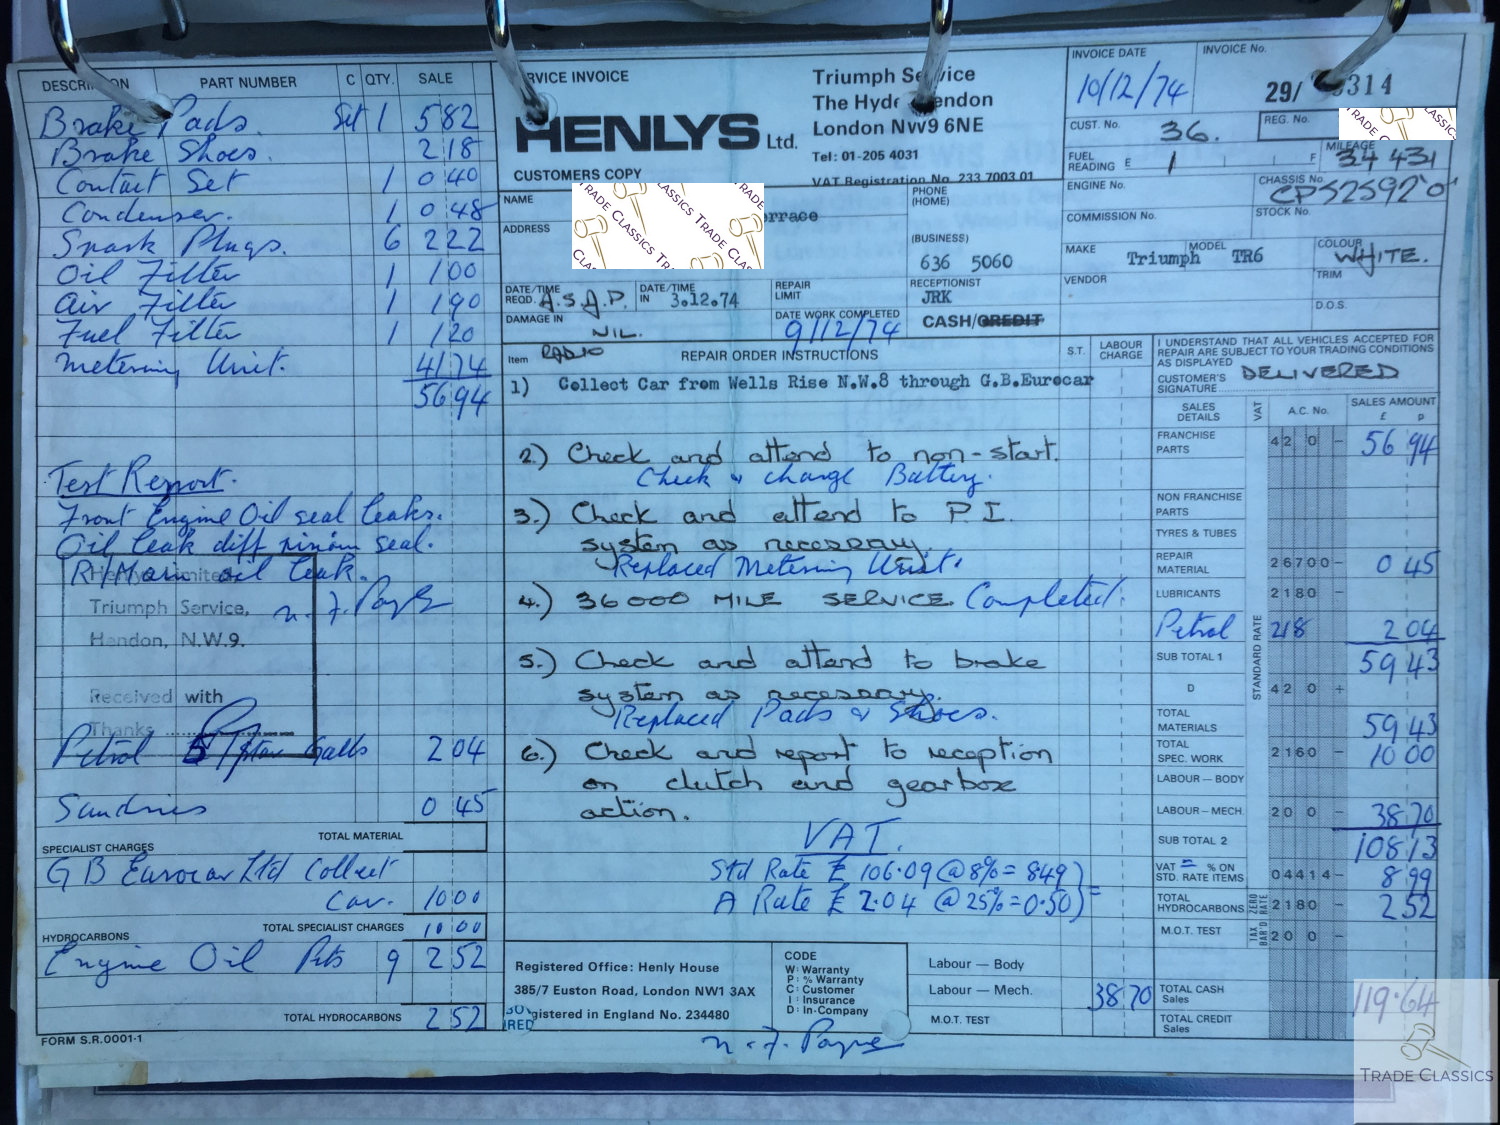 DESCRIPTION PART NUMBER C QTY. SALE
Brake Pads. Set 1 5 82
Brake Shoes. 2 18
Contact Set 1 0 40
Condenser. 1 0 48
Spark Plugs. 6 2 22
Oil Filter 1 1 00
Air Filter 1 1 90
Fuel Filter 1 1 20
Metering Unit. 41 74
56 94
Test Report.
Front Engine Oil seal leaks.
Oil leak diff pinion seal.
R/Main oil leak.
Henlys Limited
Triumph Service, n. J. Payne
Hendon, N.W.9.
Received with
Thanks
Petrol 5 Galls 2 04
Sundries 0 45
TOTAL MATERIAL
SPECIALIST CHARGES
G B Eurocar Ltd Collect
Car. 10 00
TOTAL SPECIALIST CHARGES 10 00
HYDROCARBONS
Engine Oil Pts 9 2 52
TOTAL HYDROCARBONS 2 52
FORM S.R.0001-1
SERVICE INVOICE
HENLYS Ltd.
CUSTOMERS COPY
Triumph Service
The Hyde Hendon
London NW9 6NE
Tel: 01-205 4031
VAT Registration No. 233 7003 01
INVOICE DATE 10/12/74
INVOICE No. 29/ 314
CUST. No. 36.
REG. No.
TRADE CLASSICS
FUEL READING E 1 F
MILEAGE 34 431
NAME
ADDRESS
TRADE CLASSICS TRADE CLASSICS TRADE
errace
PHONE (HOME)
(BUSINESS)
636 5060
ENGINE No.
CHASSIS No. CP52592'0'
COMMISSION No.
STOCK No.
MAKE Triumph MODEL TR6
COLOUR WHITE.
VENDOR
TRIM
D.O.S.
DATE/TIME REQD. A.S.A.P.
DATE/TIME IN 3.12.74
REPAIR LIMIT
RECEPTIONIST JRK
DAMAGE IN NIL.
DATE WORK COMPLETED 9/12/74
CASH/CREDIT
Item RADIO REPAIR ORDER INSTRUCTIONS S.T. LABOUR CHARGE
1) Collect Car from Wells Rise N.W.8 through G.B.Eurocar
2.) Check and attend to non-start.
Check & change Battery.
3.) Check and attend to P.I.
system as necessary.
Replaced Metering Unit.
4.) 36000 MILE SERVICE. Completed.
5.) Check and attend to brake
system as necessary.
Replaced Pads & Shoes.
6.) Check and report to reception
on clutch and gearbox
action.
VAT.
Std Rate £ 106.09 @ 8% = 8.49
A Rate £ 2.04 @ 25% = 0.50 =
Registered Office: Henly House
385/7 Euston Road, London NW1 3AX
Registered in England No. 234480
CODE
W: Warranty
P: % Warranty
C: Customer
I: Insurance
D: In-Company
Labour — Body
Labour — Mech. 38 70
M.O.T. TEST
n. J. Payne
I UNDERSTAND THAT ALL VEHICLES ACCEPTED FOR
REPAIR ARE SUBJECT TO YOUR TRADING CONDITIONS
AS DISPLAYED
CUSTOMER'S SIGNATURE DELIVERED
SALES DETAILS VAT A.C. No. SALES AMOUNT £ p
FRANCHISE PARTS 42 0 – 56 94
NON FRANCHISE PARTS
TYRES & TUBES
REPAIR MATERIAL 26700– 0 45
LUBRICANTS 2180 –
Petrol 218 2 04
STANDARD RATE
SUB TOTAL 1 59 43
D 42 0 +
TOTAL MATERIALS 59 43
TOTAL SPEC. WORK 2160 – 10 00
LABOUR — BODY
LABOUR — MECH. 20 0 – 38 70
SUB TOTAL 2 108 13
VAT = % ON STD. RATE ITEMS 04414– 8 99
TOTAL HYDROCARBONS ZERO RATE 2180 – 2 52
M.O.T. TEST TAX BAR'D 20 0 –
TOTAL CASH Sales 119.64
TOTAL CREDIT Sales
TRADE CLASSICS